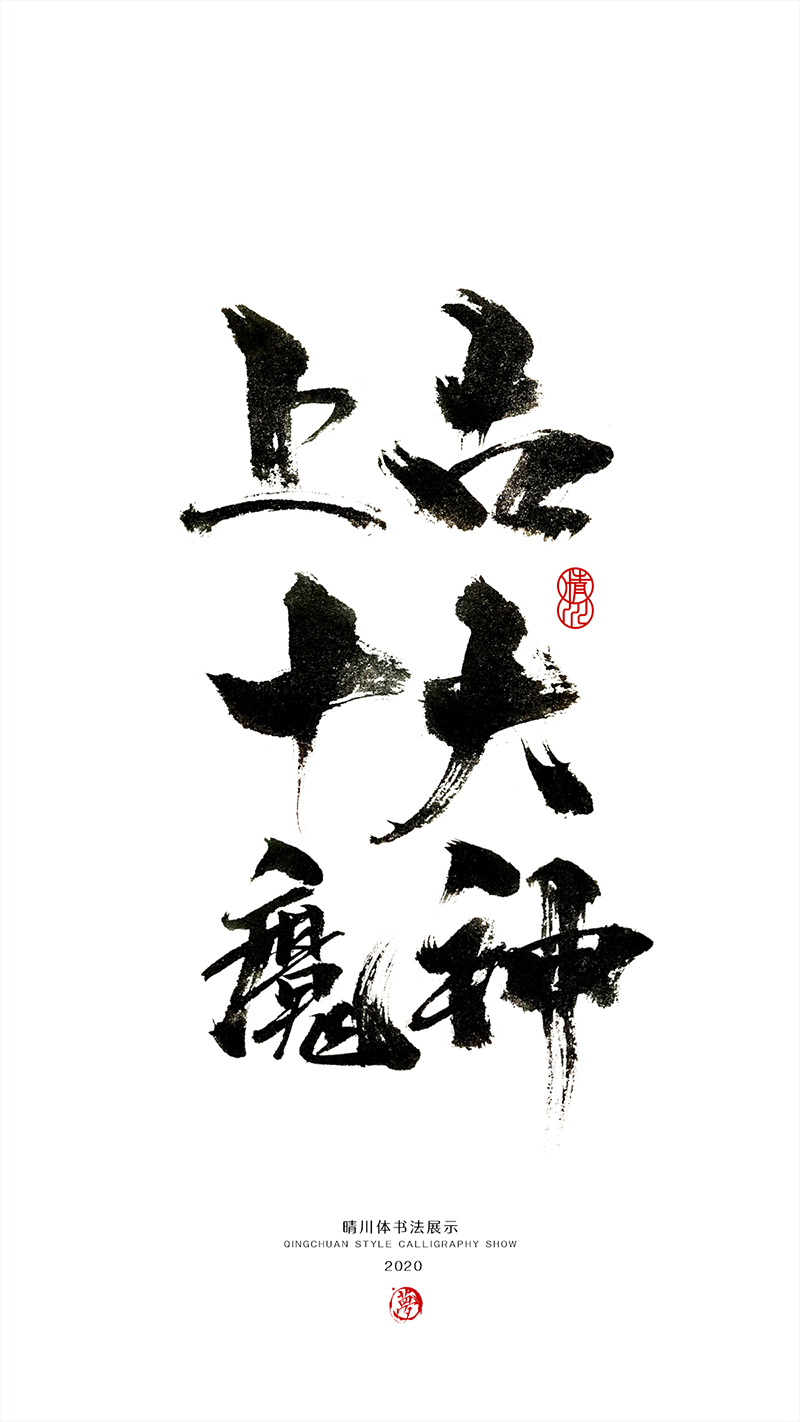 上古
十大
晴川
魔神
晴川体书法展示
QINGCHUAN STYLE CALLIGRAPHY SHOW
2020
夢